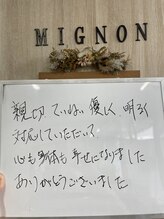 MIGNON
親切、ていねい 優しく、明るく
対応していただいて
心も身体も幸せになりました
ありがとうございました